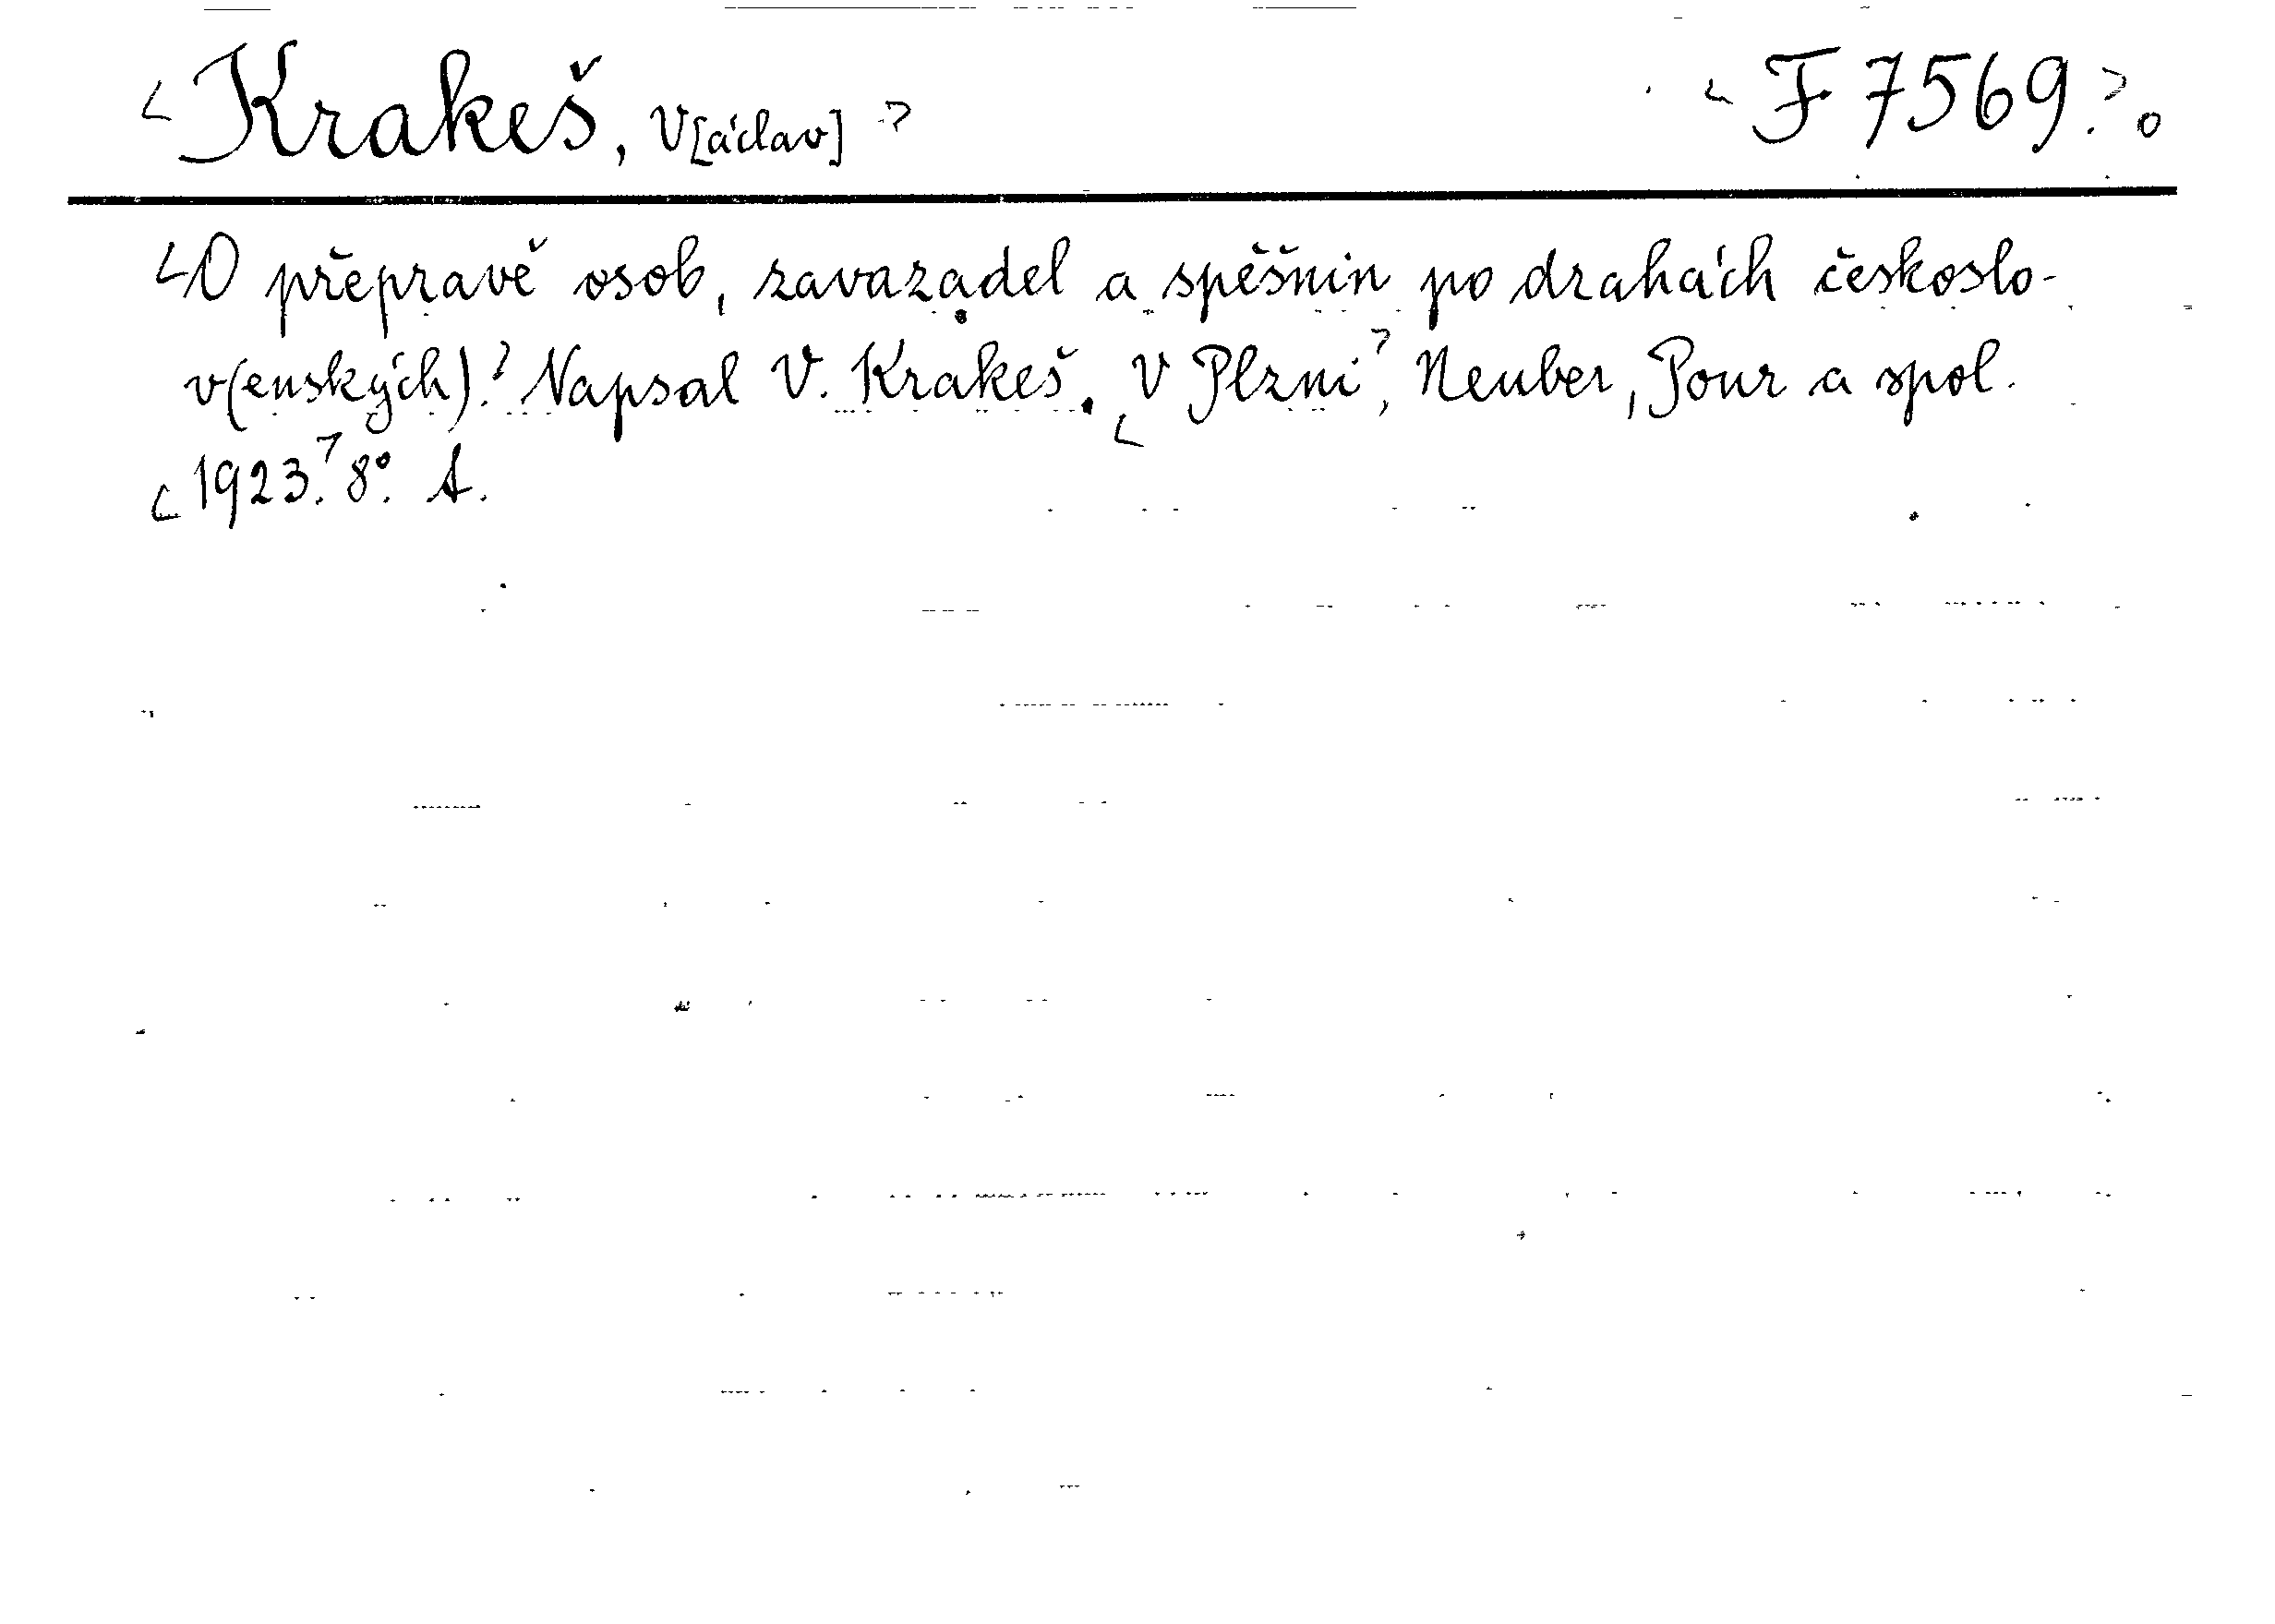 <Krakeš, V[áclav]> <F 7569.>o
<O přepravě osob, zavazadel a spěšnin po drahách českoslo-
v(enských).> Napsal V. Krakeš. <V Plzni>, Neuber, Pour a spol.
<1923.> 8°. A.